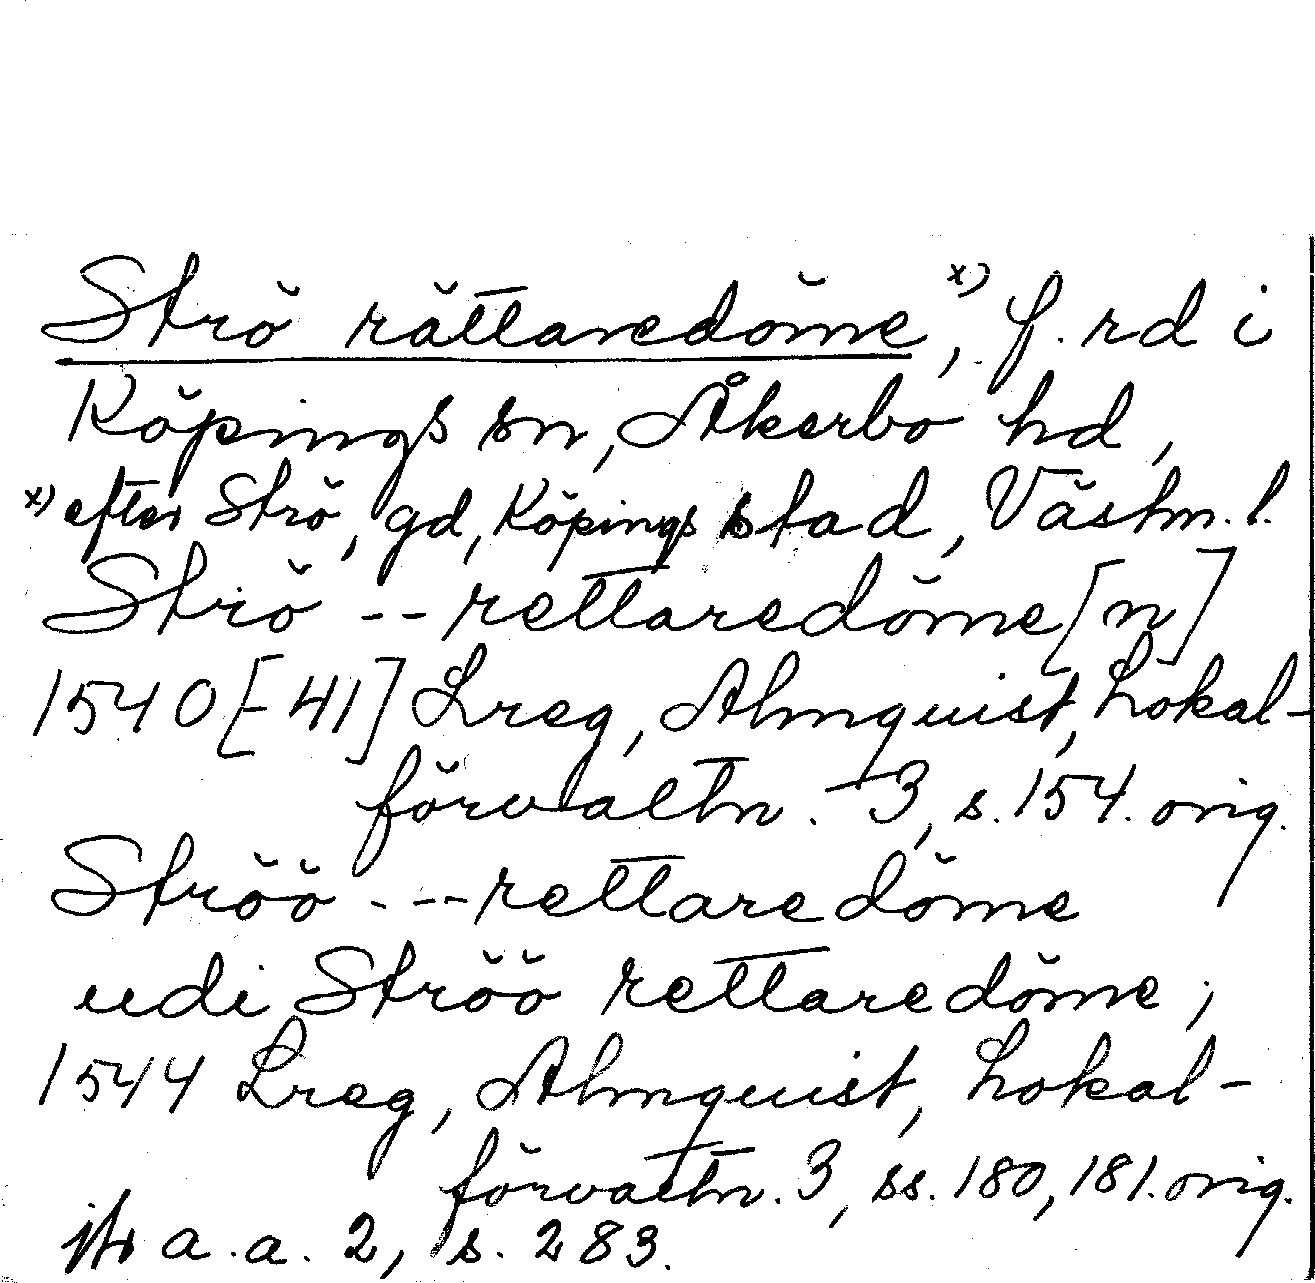 Strö rättaredöme x), f. rd i
Köpings sn, Åkerbo hd,
x) efter Strö, gd, Köpings stad, Västm. l.
Strö -- rettaredöme[n]
1540[-41] Lreg, Almquist, Lokal-
förvaltn. 3, s. 154. orig.
Ströö --- rettaredöme
udi Ströö rettaredöme;
1544 Lreg, Almquist, Lokal-
förvaltn. 3, ss. 180, 181. orig.
jfr a.a. 2, s. 283.